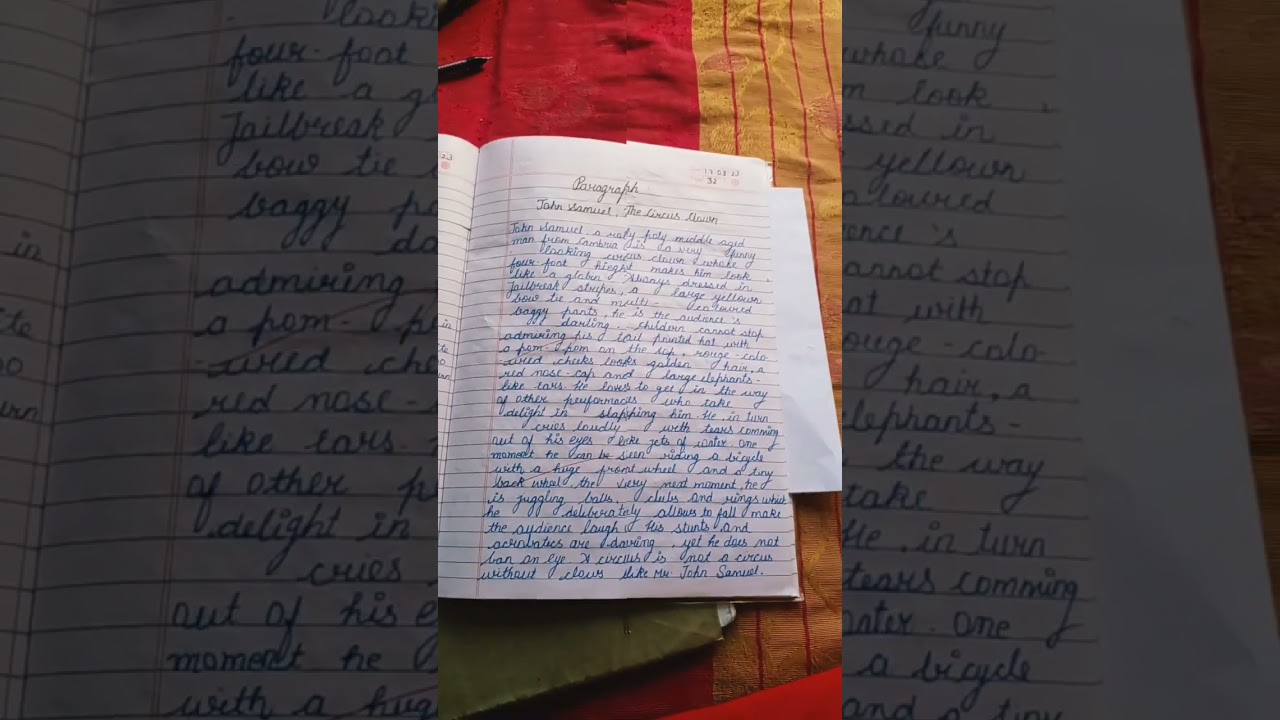 17 03 23
32
Paragraph
John Samuel, The Circus Clown
John Samuel, a roly poly middle aged
man from Cambria is a very funny
looking circus clown whoke
four-foot hieght makes him look
like a Always dressed in
Jailbreak stripes, a large yellown
bow tie and multi- coloured
baggy pants, he is the audience's
darling. childern cannot stop
admiring his tall printed hat with
a pom-pom on the top, rouge-colo-
ured cheeks looks golden hair, a
red nose-cap and large elephants-
like ears. He loves to get in the way
of other performacis who take
delight in slapping him. He, in turn
cries loudly with tears comming
out of his eyes like jets of water. One
moment he can be seen riding a bicycle
with a huge front wheel and a tiny
back wheel, the very next moment, he
is juggling balls, clubs and rings which
he deliberately allows to fall make
the audience laugh. His stunts and
acrobatics are daring, yet he does not
ban an eye. A circius is not a circus
without clows like Mr. John Samuel.